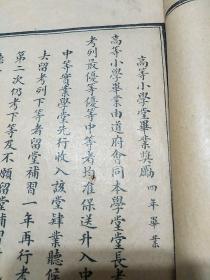 高等小學堂畢業獎勵 四年畢業
高等小學畢業由道府會同本學堂堂長考
考列最優等優等中等者均准保送升入中
中等實業學堂先行收入該堂肄業聽候
大留考列下等者留堂補習一年再行考
第二次仍考下等及不願留堂補習